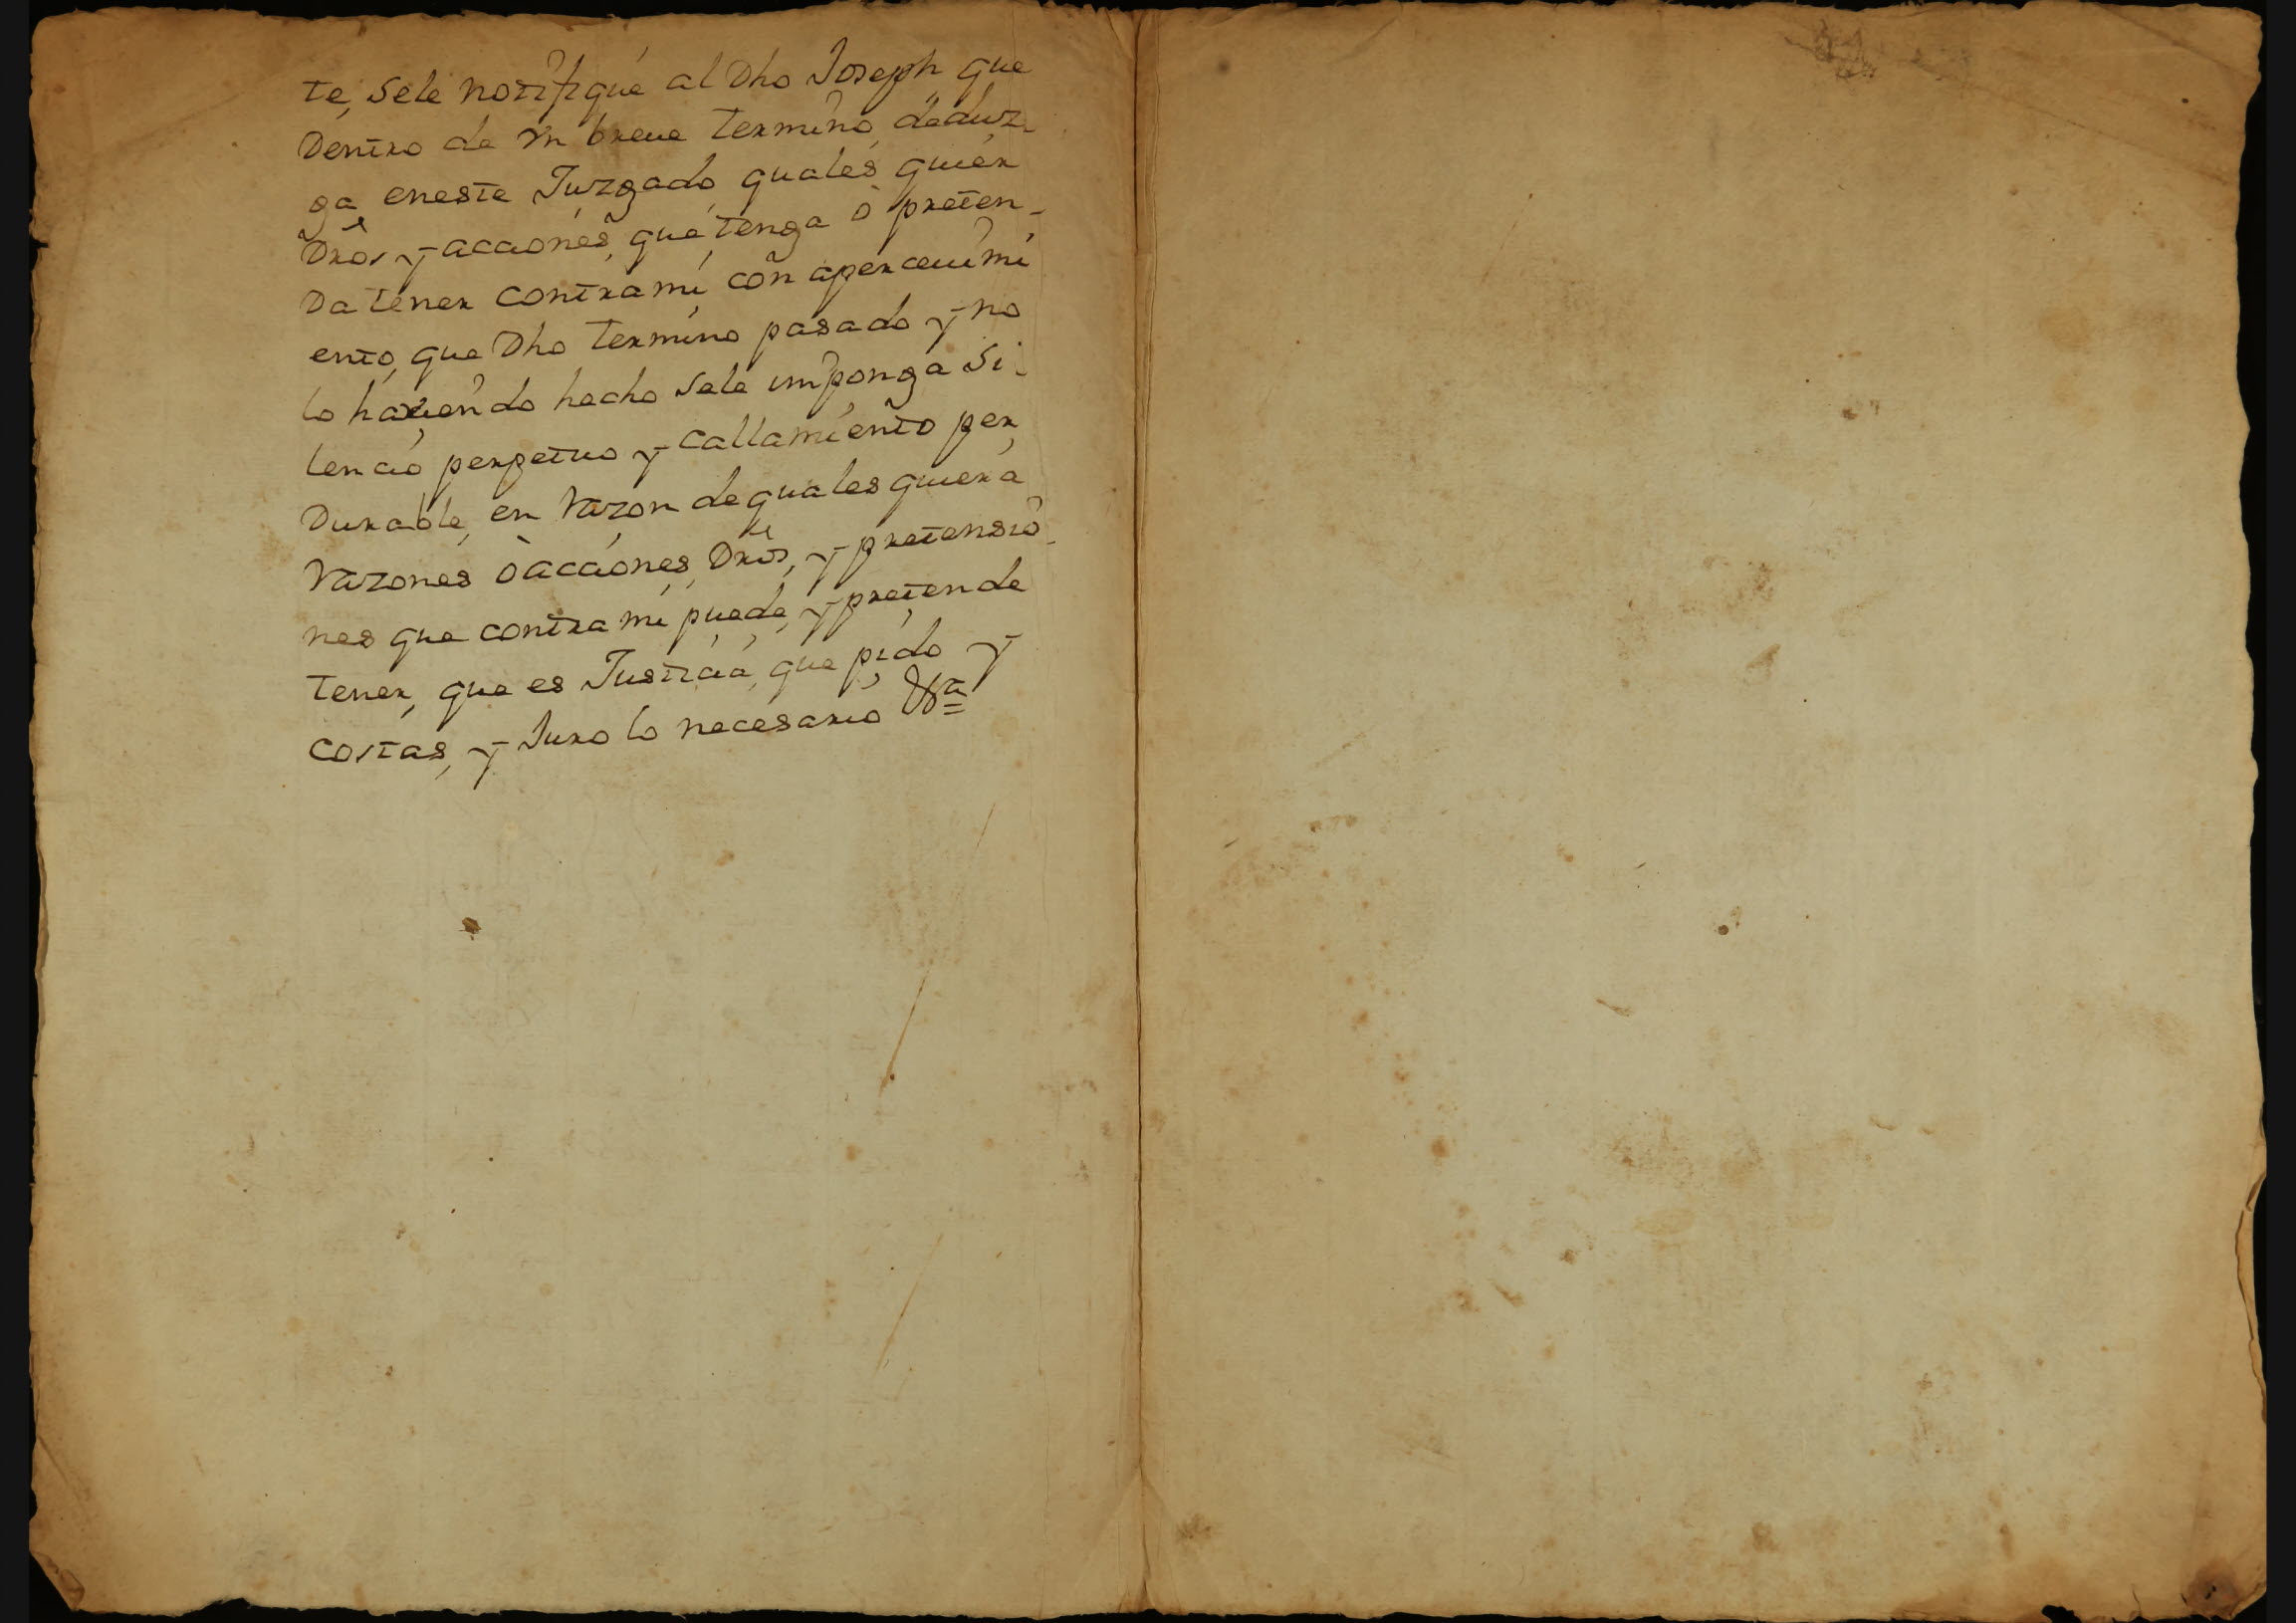 te, sele notifique al Dho Joseph que
Dentro de vn breue termino, deduz-
ga eneste Juzgado quales quier
Dros y acciones, que tenga ò preten-
Da tener contra mi con aperceuimi
ento, que Dho termino pasado y no
lo hauiendo hecho sele imponga Si-
lencio perpetuo y callamiento per
Durable, en Razon de quales quiera
Razones ò acciones, Dros, y pretensio-
nes que contra mi puede, y pretende
tener, que es Justicia, que pido y
costas, y Juro lo necesario &a=